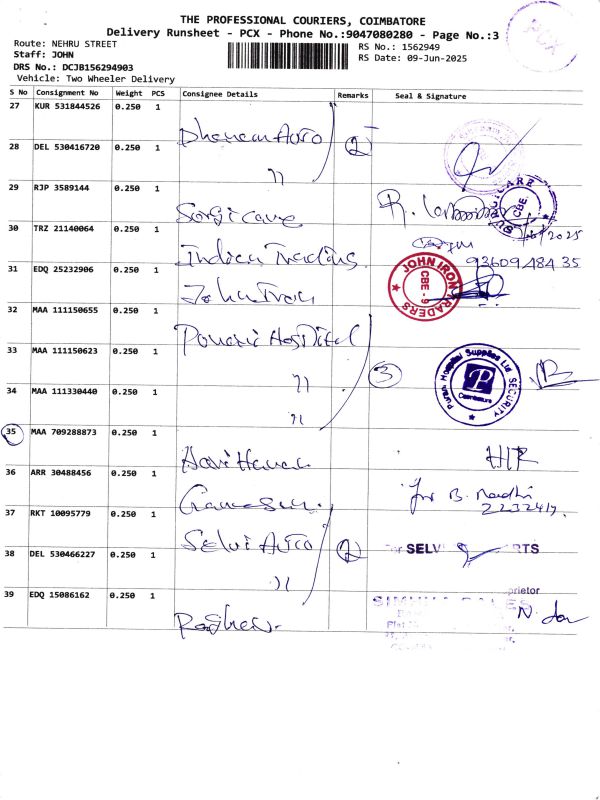 THE PROFESSIONAL COURIERS, COIMBATORE
Delivery Runsheet - PCX - Phone No.:9047080280 - Page No.:3
PCX
Route: NEHRU STREET
RS No.: 1562949
Staff: JOHN
RS Date: 09-Jun-2025
DRS No.: DCJB156294903
Vehicle: Two Wheeler Delivery
S No Consignment No Weight PCS Consignee Details Remarks Seal & Signature
27 KUR 531844526 0.250 1
Dhanam Auto
28 DEL 530416720 0.250 1 2
"
29 RJP 3589144 0.250 1
Surgicare
SURGICARE CBE.
30 TRZ 21140064 0.250 1
Indian Trading
93609 484 35
31 EDQ 25232906 0.250 1
John Iron
JOHN IRON TRADERS CBE - 9
32 MAA 111150655 0.250 1
Hospital
33 MAA 111150623 0.250 1
" 3
Hospital Supplies Ltd SECURITY Coimbatore
34 MAA 111330440 0.250 1
"
35 MAA 709288873 0.250 1
36 ARR 30488456 0.250 1
for B.
2232417.
37 RKT 10095779 0.250 1
Selvi Auto 2
SELV RTS
38 DEL 530466227 0.250 1
"
prietor
39 EDQ 15086162 0.250 1
N.